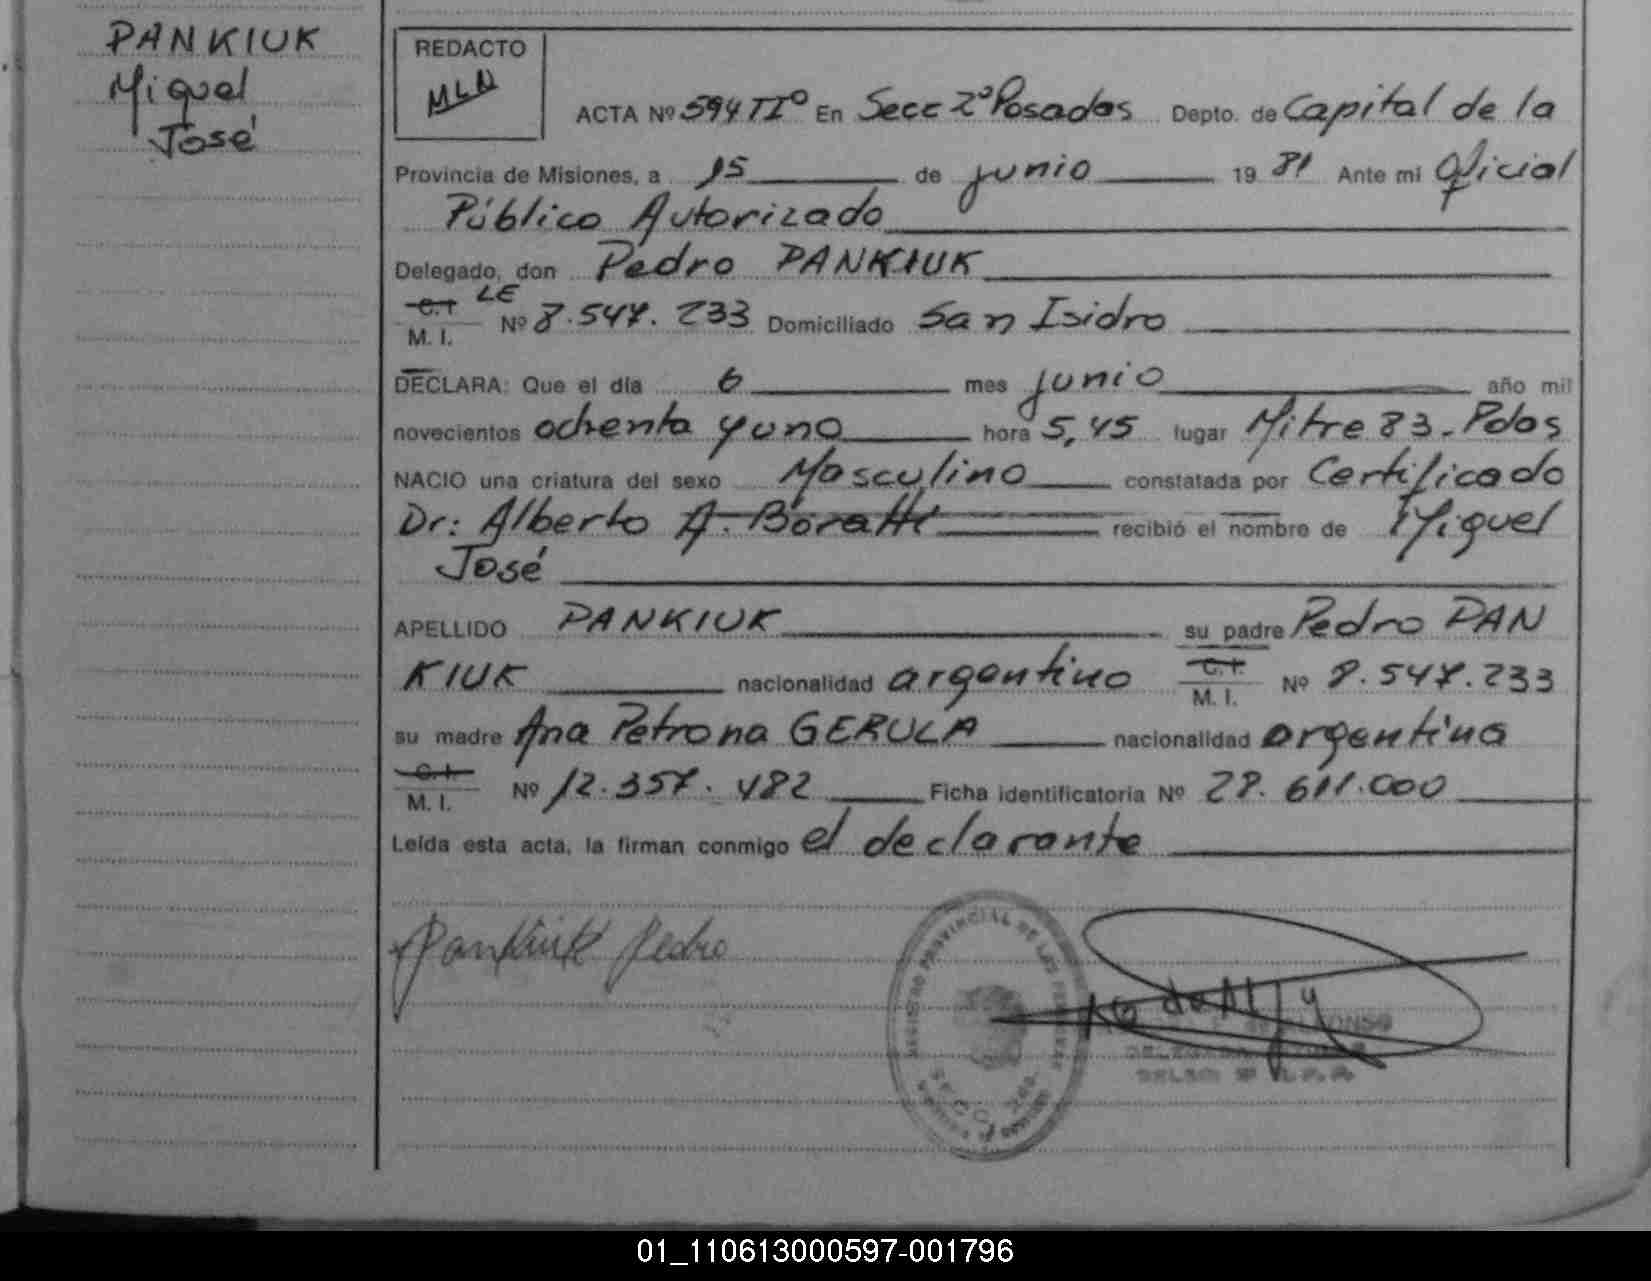 PANKIUK
Miguel
José
REDACTO
MLN
ACTA Nº 594 TIIº En Secc 2º Posadas Depto. de Capital de la
Provincia de Misiones, a 15 de junio 1981 Ante mi Oficial
Público Autorizado
Delegado, don Pedro PANKIUK
C.I. LE
M. I. Nº 8.547.233 Domiciliado San Isidro
DECLARA: Que el día 6 mes junio año mil
novecientos ochenta y uno hora 5,45 lugar Mitre 83-Pdas
NACIO una criatura del sexo Masculino constatada por Certificado
Dr: Alberto A. Boratti recibió el nombre de Miguel
José
APELLIDO PANKIUK su padre Pedro PAN
KIUK nacionalidad argentino C.I. M. I. Nº 8.547.233
su madre Ana Petrona GERULA nacionalidad argentina
C.I. M. I. Nº 12.357.482 Ficha identificatoria Nº 28.611.000
Leída esta acta, la firman conmigo el declarante
Pankiuk Pedro
REGISTRO PROVINCIAL DE LAS PERSONAS
01_110613000597-001796